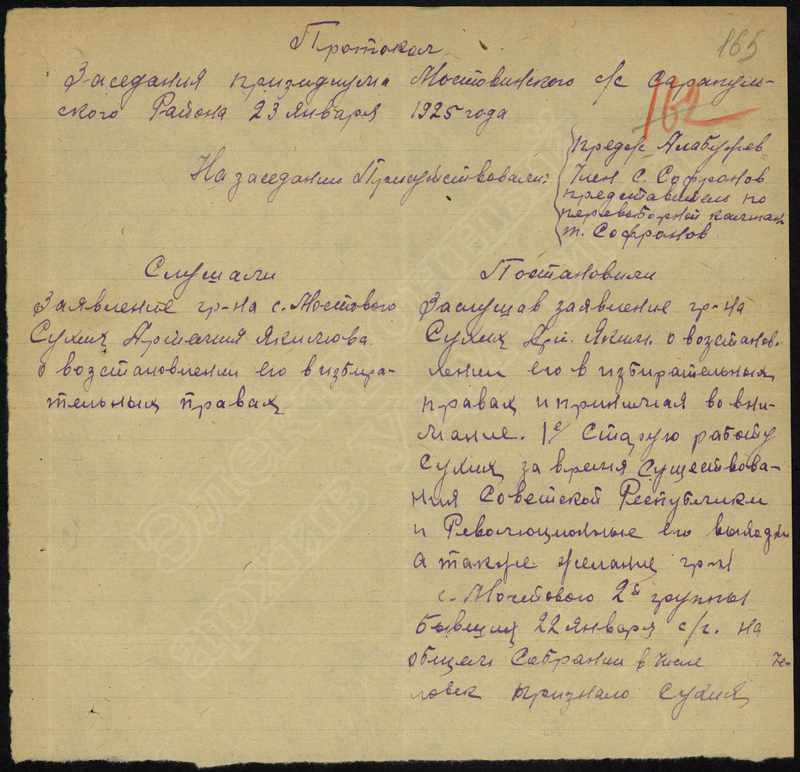 165
162
Протокол
Заседания призидиума Мостовинского с/с Сарапуль-
ского Района 23 Января 1925 года
На заседании Присуйствовали:
предс/с Алабужев
Член С. Софронов
представители по
перевыборной кампан.
т. Софронов
Слушали
Заявление гр-на с. Мостового
Сухих Артемия Якимова
о возстановлении его в избира-
тельных правах
Постановили
Заслушав заявление гр-на
Сухих Арт. Яким. о возстанов-
лении его в избирательных
правах и принимая во вни-
мание. 1е Старую работу
Сухих за время Существова-
ния Советской Республики
и Революционные его
а также желание гр-н
с. Мостового 2й группы
бывших 22 января с/г. на
общем Собрании в числе че-
ловек признало Сухих